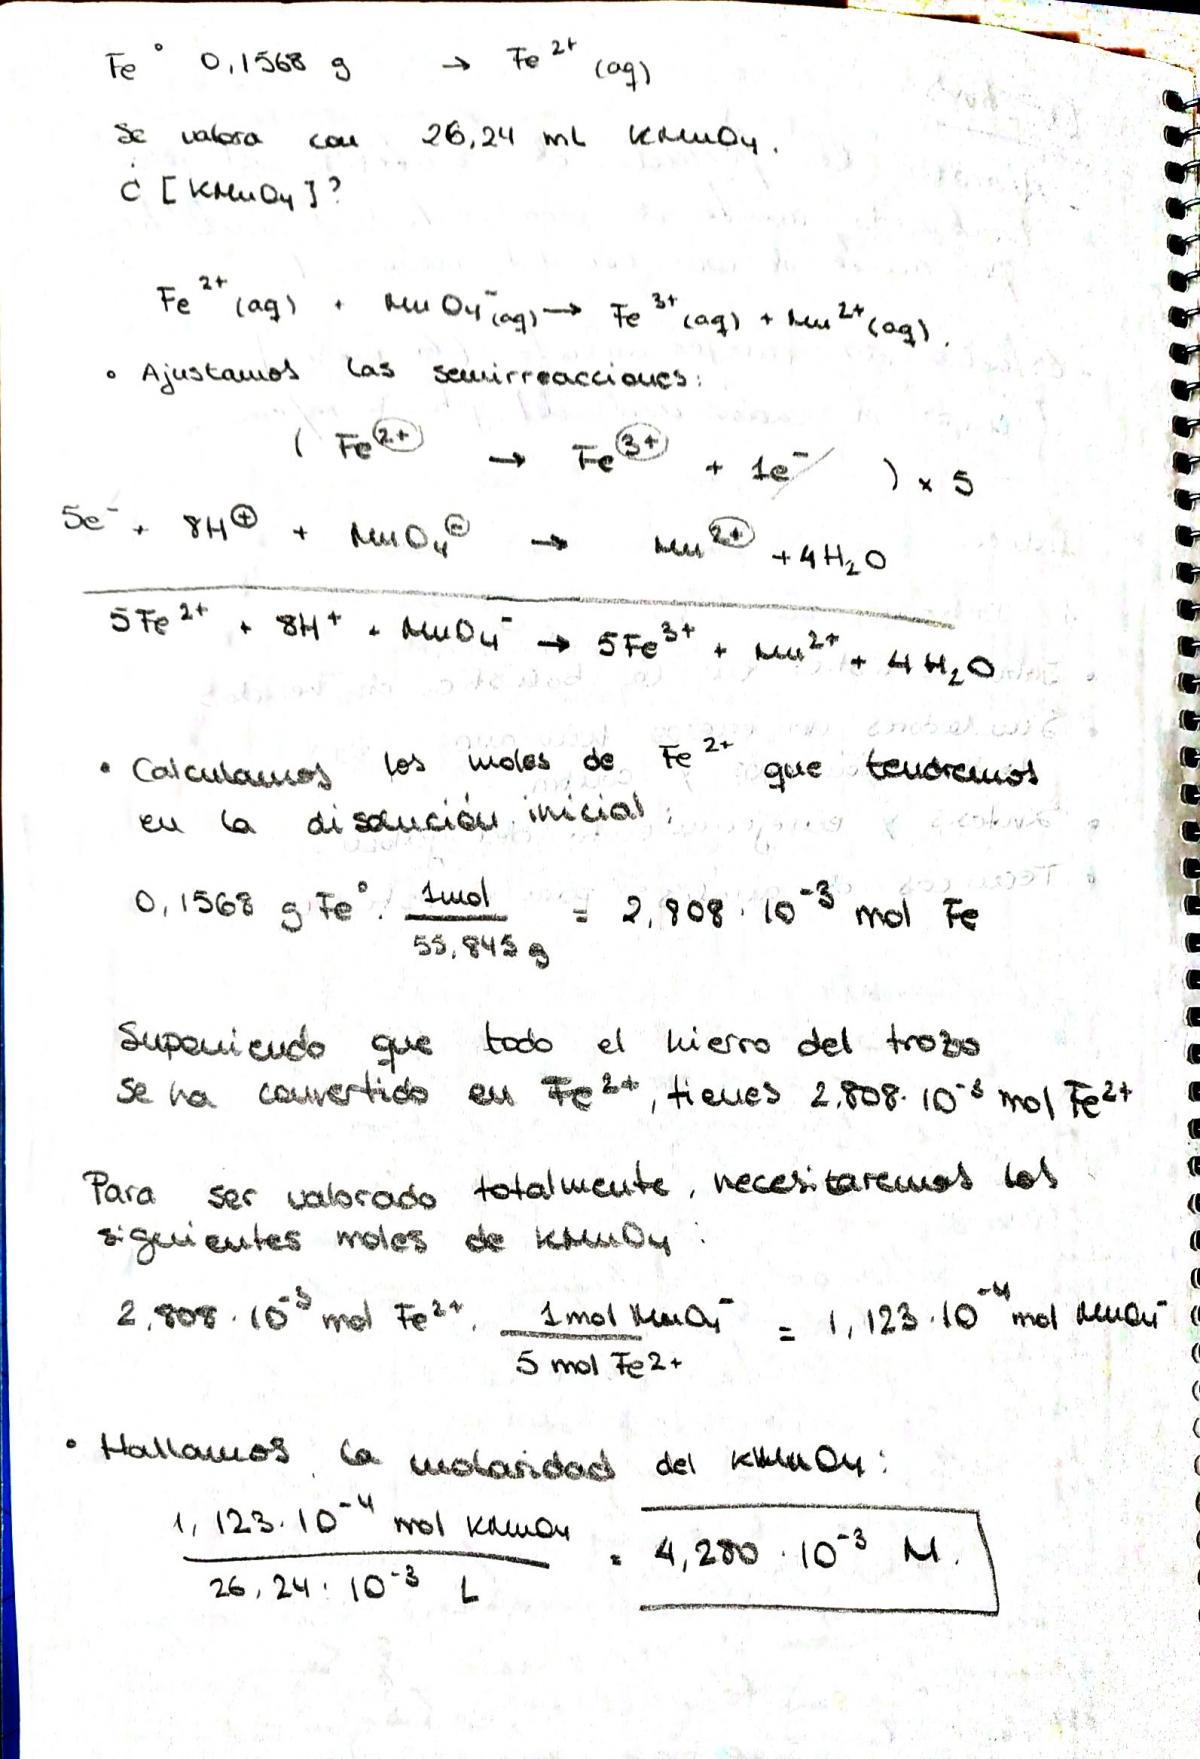 Fe° 0,1568 g → Fe²⁺ (aq)
Se valora con 26,24 mL KMnO₄.
¿ [KMnO₄]?
Fe²⁺(aq) + MnO₄⁻(aq) → Fe³⁺(aq) + Mn²⁺(aq).
• Ajustamos las semirreacciones:
( Fe²⁺ → Fe³⁺ + 1e⁻ ) × 5
5e⁻ + 8H⁺ + MnO₄⁻ → Mn²⁺ + 4H₂O
5Fe²⁺ + 8H⁺ + MnO₄⁻ → 5Fe³⁺ + Mn²⁺ + 4H₂O
• Calculamos los moles de Fe²⁺ que tendremos
en la disolución inicial:
0,1568 g Fe° · 1mol / 55,845 g = 2,808 · 10⁻³ mol Fe
Suponiendo que todo el hierro del trozo
se ha convertido en Fe²⁺, tienes 2,808 · 10⁻³ mol Fe²⁺
Para ser valorado totalmente, necesitaremos los
siguientes moles de KMnO₄:
2,808 · 10⁻³ mol Fe²⁺ · 1 mol MnO₄⁻ / 5 mol Fe2+ = 1,123 · 10⁻⁴ mol MnO₄⁻
• Hallamos la molaridad del KMnO₄:
1,123 · 10⁻⁴ mol KMnO₄ / 26,24 · 10⁻³ L = 4,280 · 10⁻³ M.